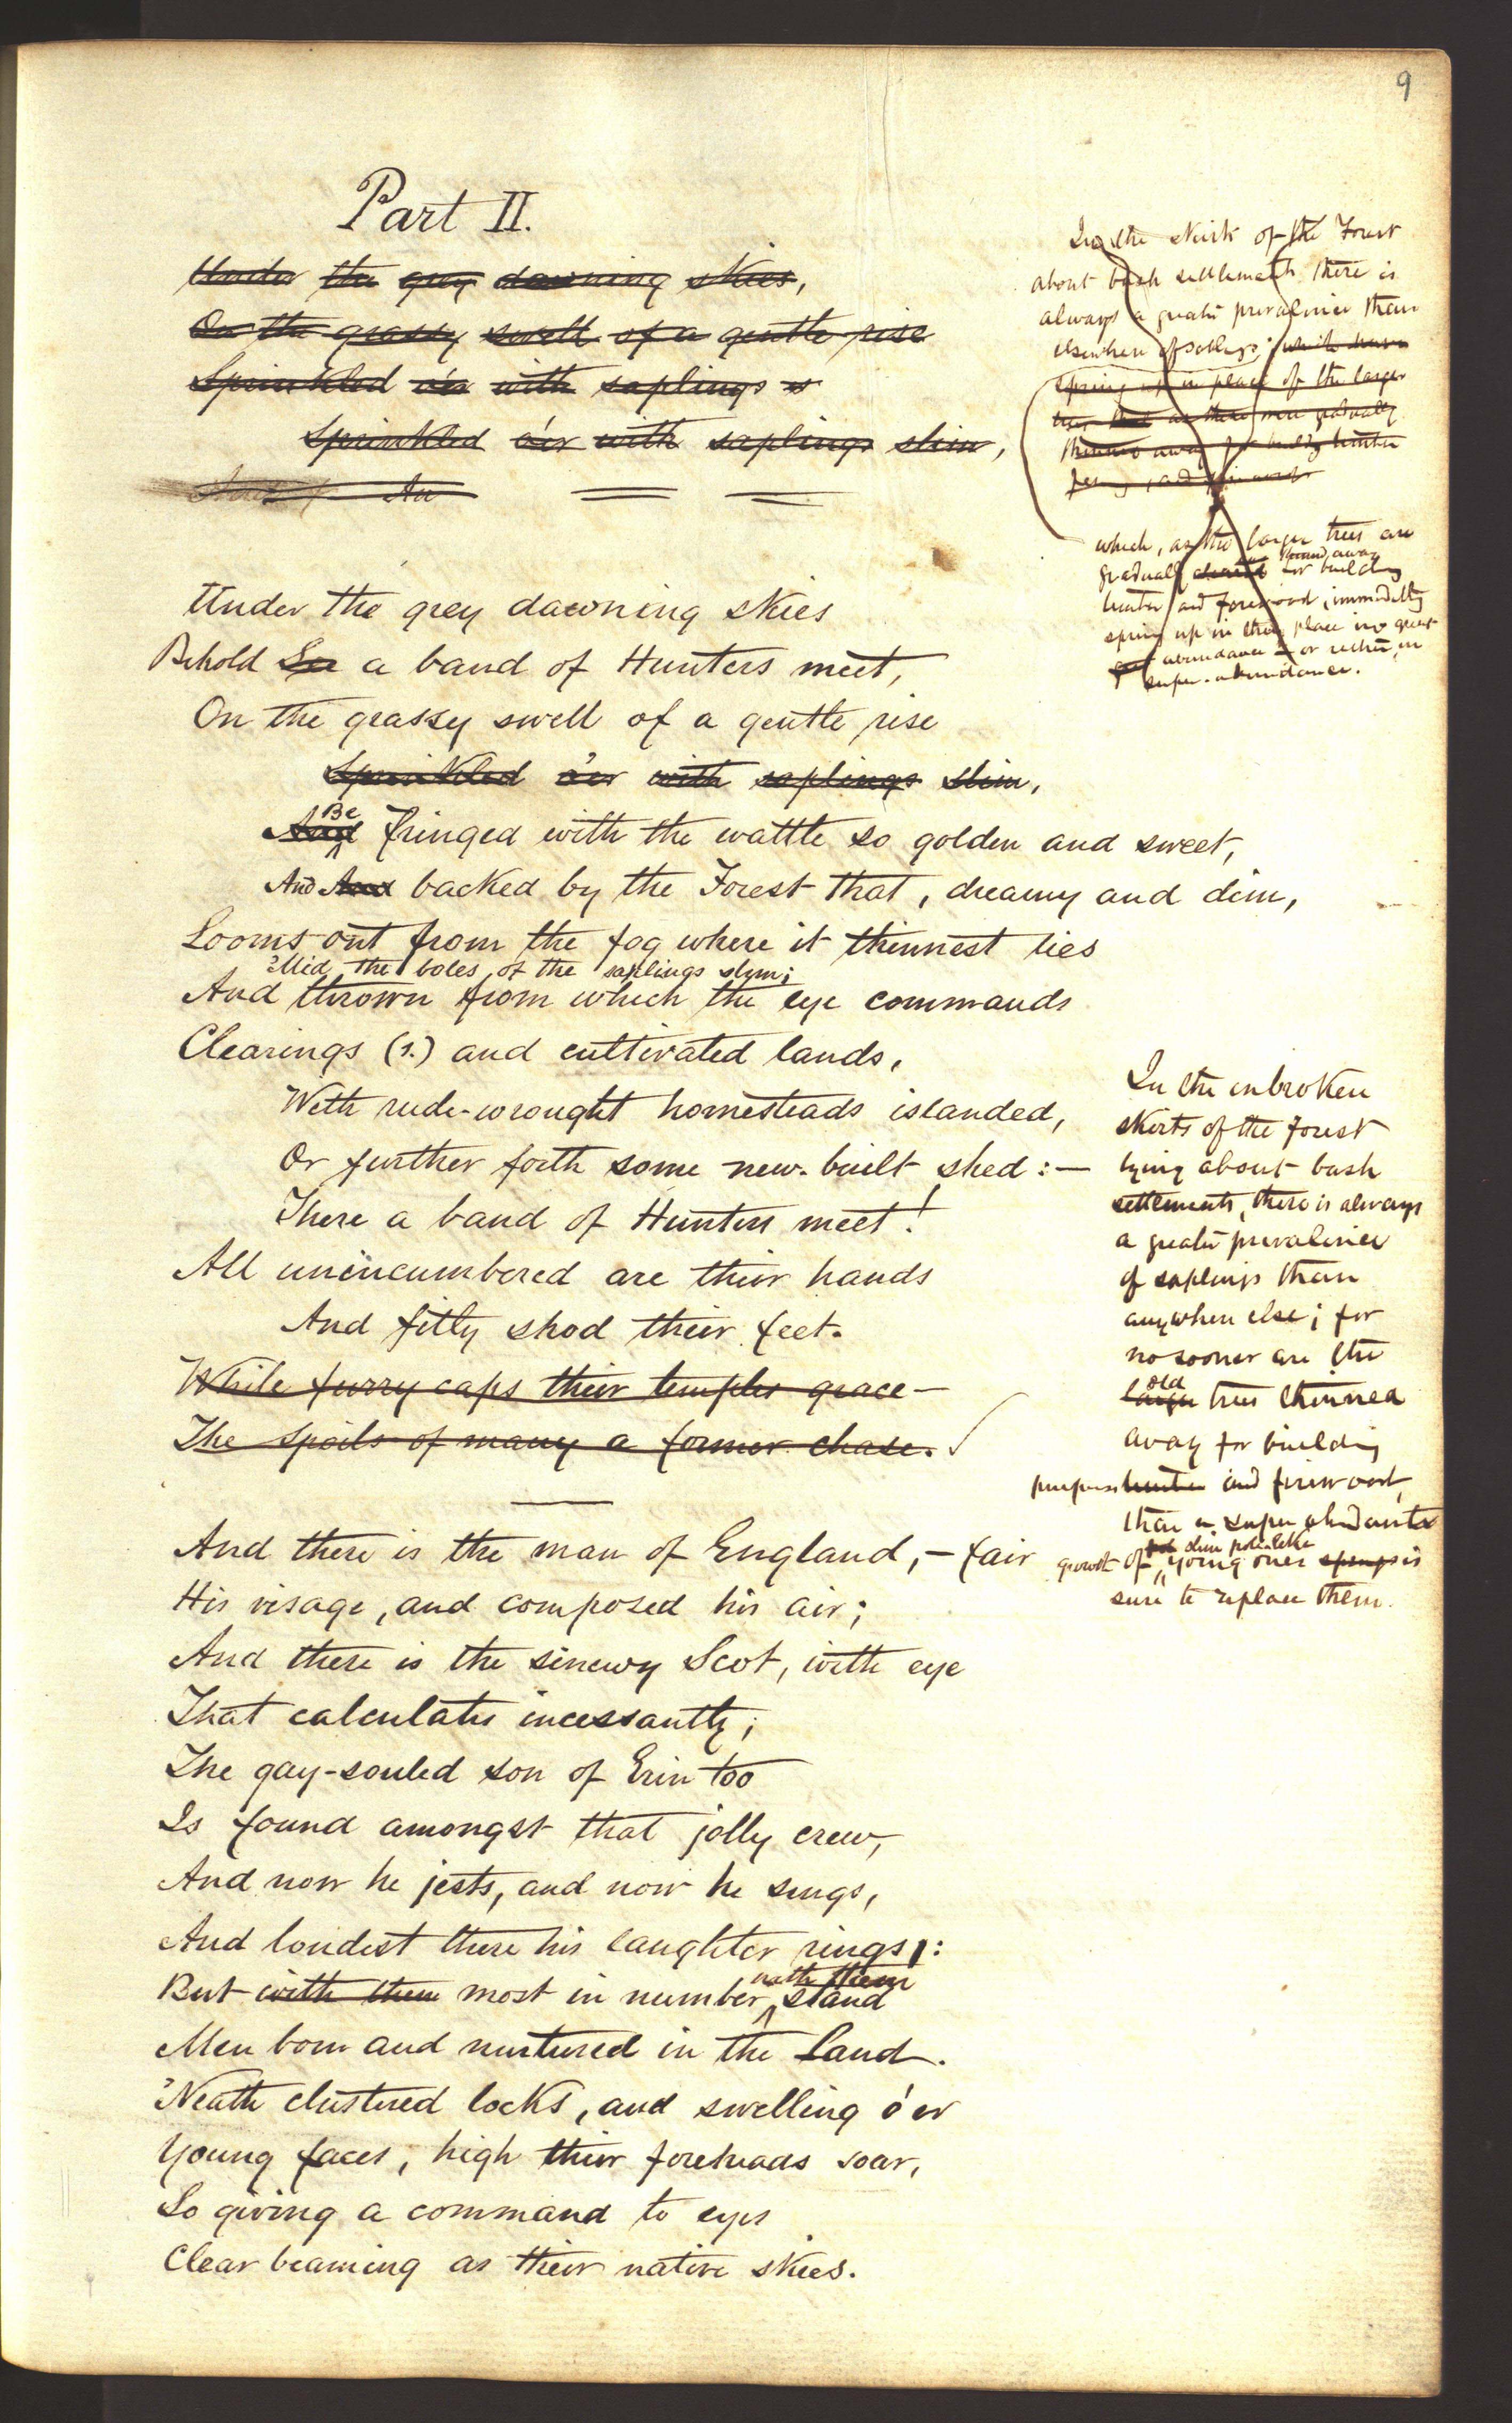 9
Part II.
Under the grey dawning skies,
On the grassy swell of a gentle rise
Sprinkled o'er with saplings s
Sprinkled o'er with saplings slim,
An
Under the grey dawning skies
Behold See a band of Hunters meet,
On the grassy swell of a gentle rise
Sprinkled o'er with saplings slim,
Be
And fringed with the wattle so golden and sweet,
And And backed by the Forest that, dreamy and dim,
Looms out from the fog where it thinnest lies
'Mid the boles of the saplings slim;
And thrown from which the eye commands
Clearings (1.) and cultivated lands,
With rude-wrought homesteads islanded,
Or further forth some new-built shed:—
There a band of Hunters meet!
All unincumbered are their hands
And fitly shod their feet.
While furry caps their temples grace—
The spoils of many a former chase.
And there is the man of England,—fair
His visage, and composed his air;
And there is the sinewy Scot, with eye
That calculates incessantly;
The gay-souled son of Erin too
Is found amongst that jolly crew,
And now he jests, and now he sings,
And loudest there his laughter rings:
with them
But with them most in number stand
Men born and nurtured in the Land.
'Neath clustered locks, and swelling o'er
Young faces, high their foreheads soar,
So giving a command to eyes
Clear beaming as their native skies.
In the skirts of the Forest
about bush settlements there is
always a greater prevalence than
elsewhere of saplings; which
spring up in place of the larger
trees as these were gradually
thinned away for building timber
which, as the larger trees are
thinned away
gradually cleared for building
timber and firewood, immediately
spring up in their place in great
abundance — or rather, in
super-abundance.
In the unbroken
skirts of the forest
lying about bush
settlements, there is always
a greater prevalence
of saplings than
anywhere else; for
no sooner are the
old
larger trees thinned
away for building
purposes timber and firewood,
than a super abundant
slim polelike
growth of young ones springs is
sure to replace them.